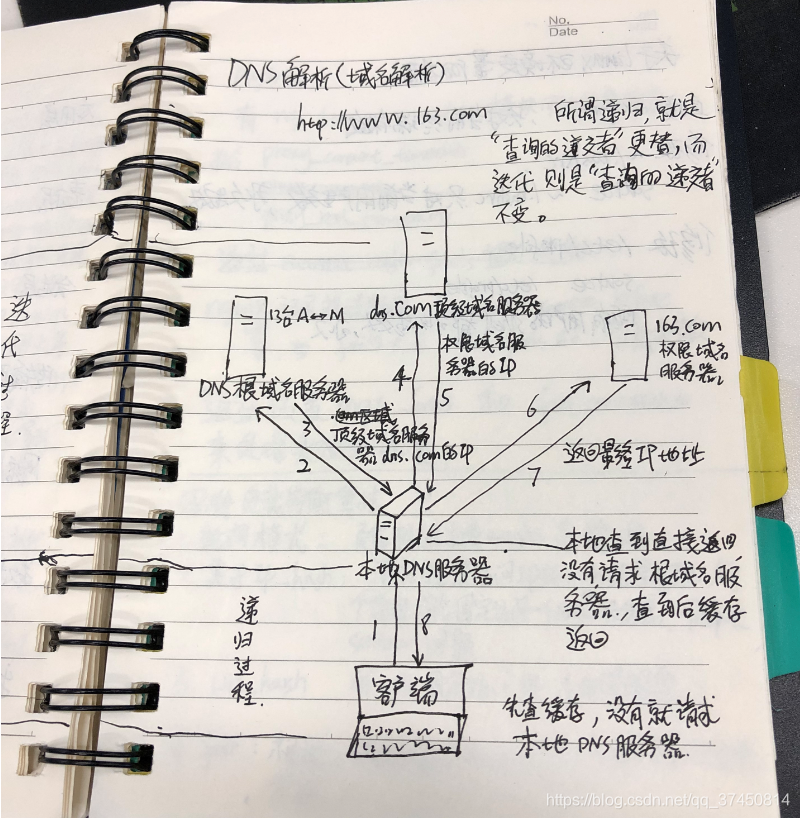 No.
Date
DNS解析(域名解析)
http://www.163.com
所谓递归,就是
“查询的递交者”更替,而
迭代则是“查询的递交者”
不变。
13台A↔M
dns.com顶级域名服务器
163.com
权限域名
服务器
DNS根域名服务器
权限域名服
务器的IP
4
5
6
3
2
7
顶级域名服务
器dns.com的IP
返回最终IP地址
迭
代
程.
本地DNS服务器
本地查到直接返回
没有请求根域名服
务器.,查到后缓存
返回
递
归
过
程.
1
8
客户端
先查缓存,没有就请求
本地DNS服务器.
https://blog.csdn.net/qq_37450814